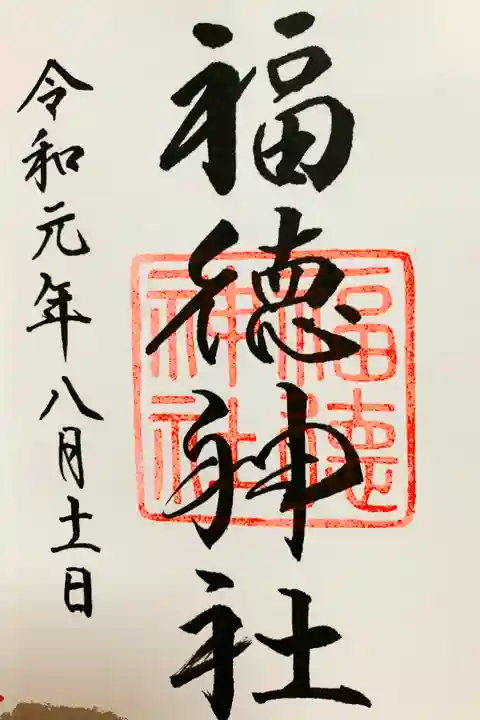 福徳神社
福徳神社
令和元年八月十一日